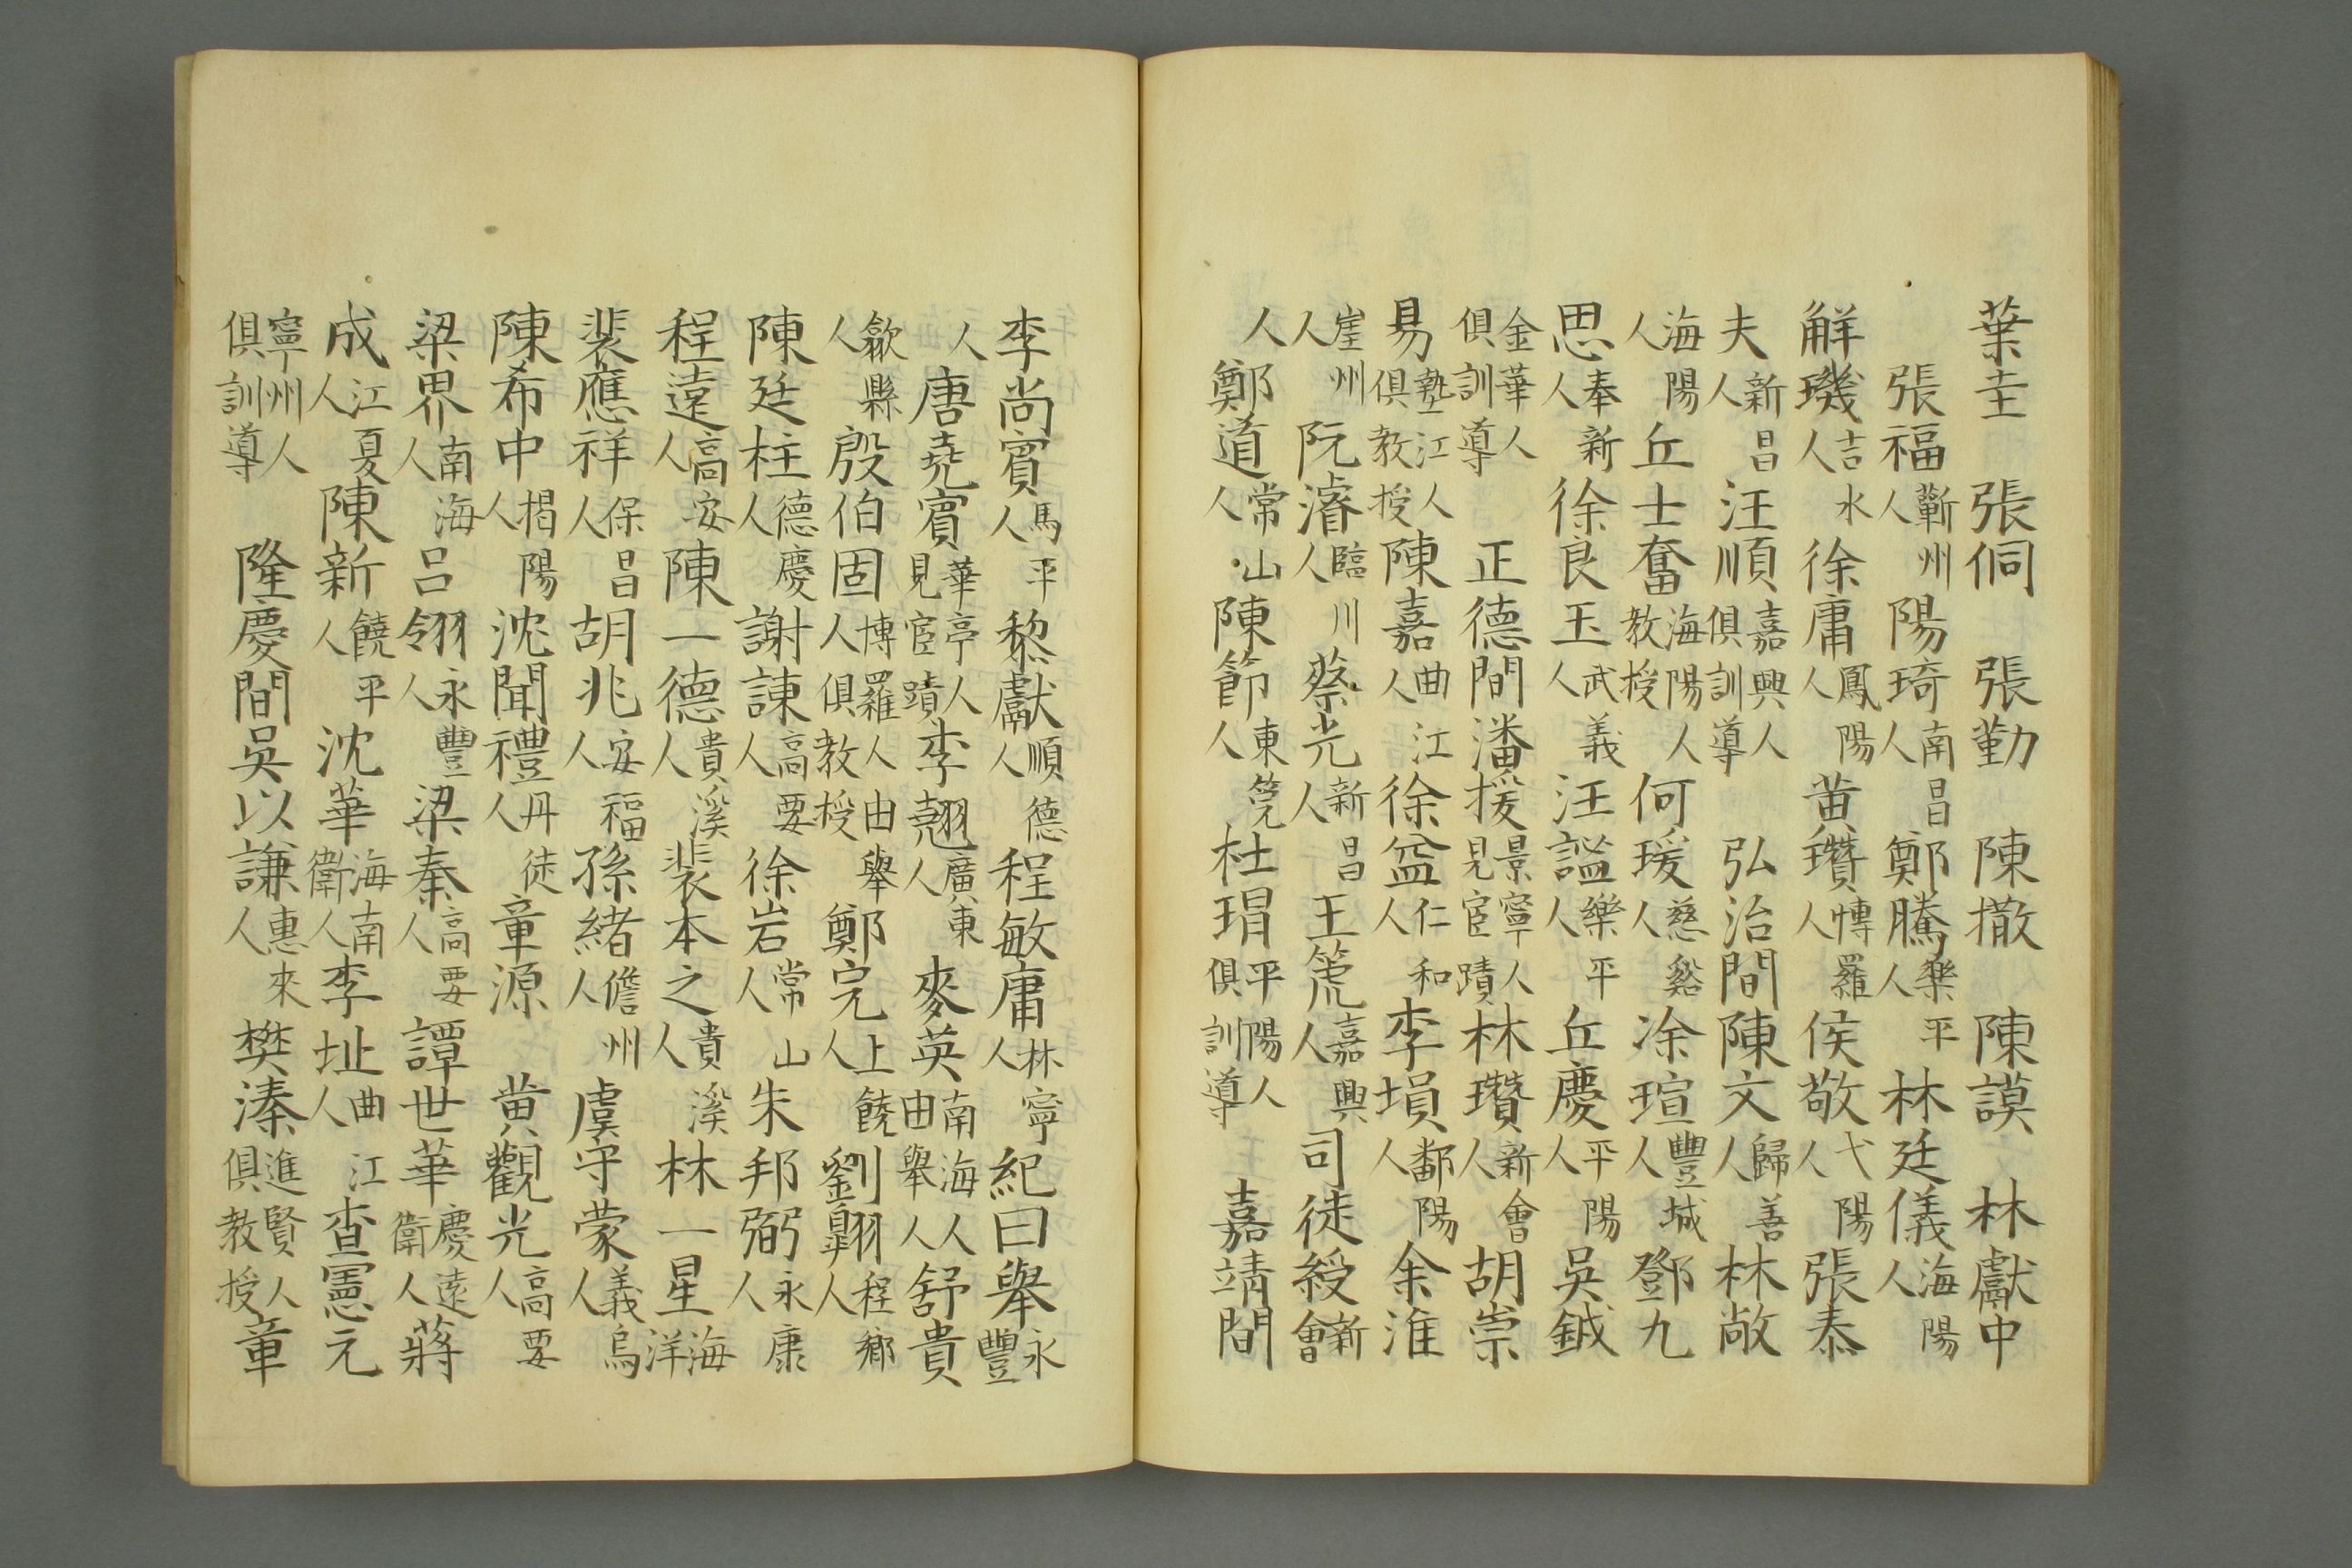 葉圭　張侗　張勤　陳撒　陳謨　林獻中
張福蘄州人陽琦南昌人鄭騰樂平人林廷儀海陽人
觧璣吉水人徐庸鳳陽人黃瓚博羅人侯敬弋陽人張泰
夫新昌人汪順嘉興人俱訓導　弘治間陳文歸善人林敞
海陽人丘士奮海陽人教授　何瑗慈谿人涂瑄豐城人鄧九
思奉新人徐良玉武義人汪謐樂平人丘慶平陽人吳鉞
金華人俱訓導　正德間潘援景寧人見宦蹟林瓚新會人胡崇
易墊江人俱教授陳嘉曲江人徐益仁和人李塤鄱陽人余淮
崖州人阮濬臨川人蔡光新昌人王箎嘉興人司徒綬新會
人鄭道常山人陳節東筦人杜瑁平陽人俱訓導　嘉靖間
李尚賓馬平人黎獻順德人程敏庸林寧人紀曰舉永豐
人唐堯賓華亭人見宦蹟李翹廣東人麥英南海人由舉人舒貴
歙縣人殷伯固博羅人由舉人俱教授　鄭完上饒人劉翺程鄉人
陳廷柱德慶人謝諫高要人徐岩常山人朱邦弼永康人
程遠高安人陳一德貴溪人裴本之貴溪人林一星海洋
裴應祥保昌人胡兆安福人孫緒儋州人虞守蒙義烏人
陳希中揭陽人沈聞禮丹徒人章源　黃觀光高要人
梁界南海人呂翎永豐人梁秦高要人譚世華慶遠衛人蔣
成江夏人陳新饒平人沈華海南衛人李址曲江人查憲元
寧州人俱訓導　隆慶間吳以謙惠來人樊溱進賢人俱教授章